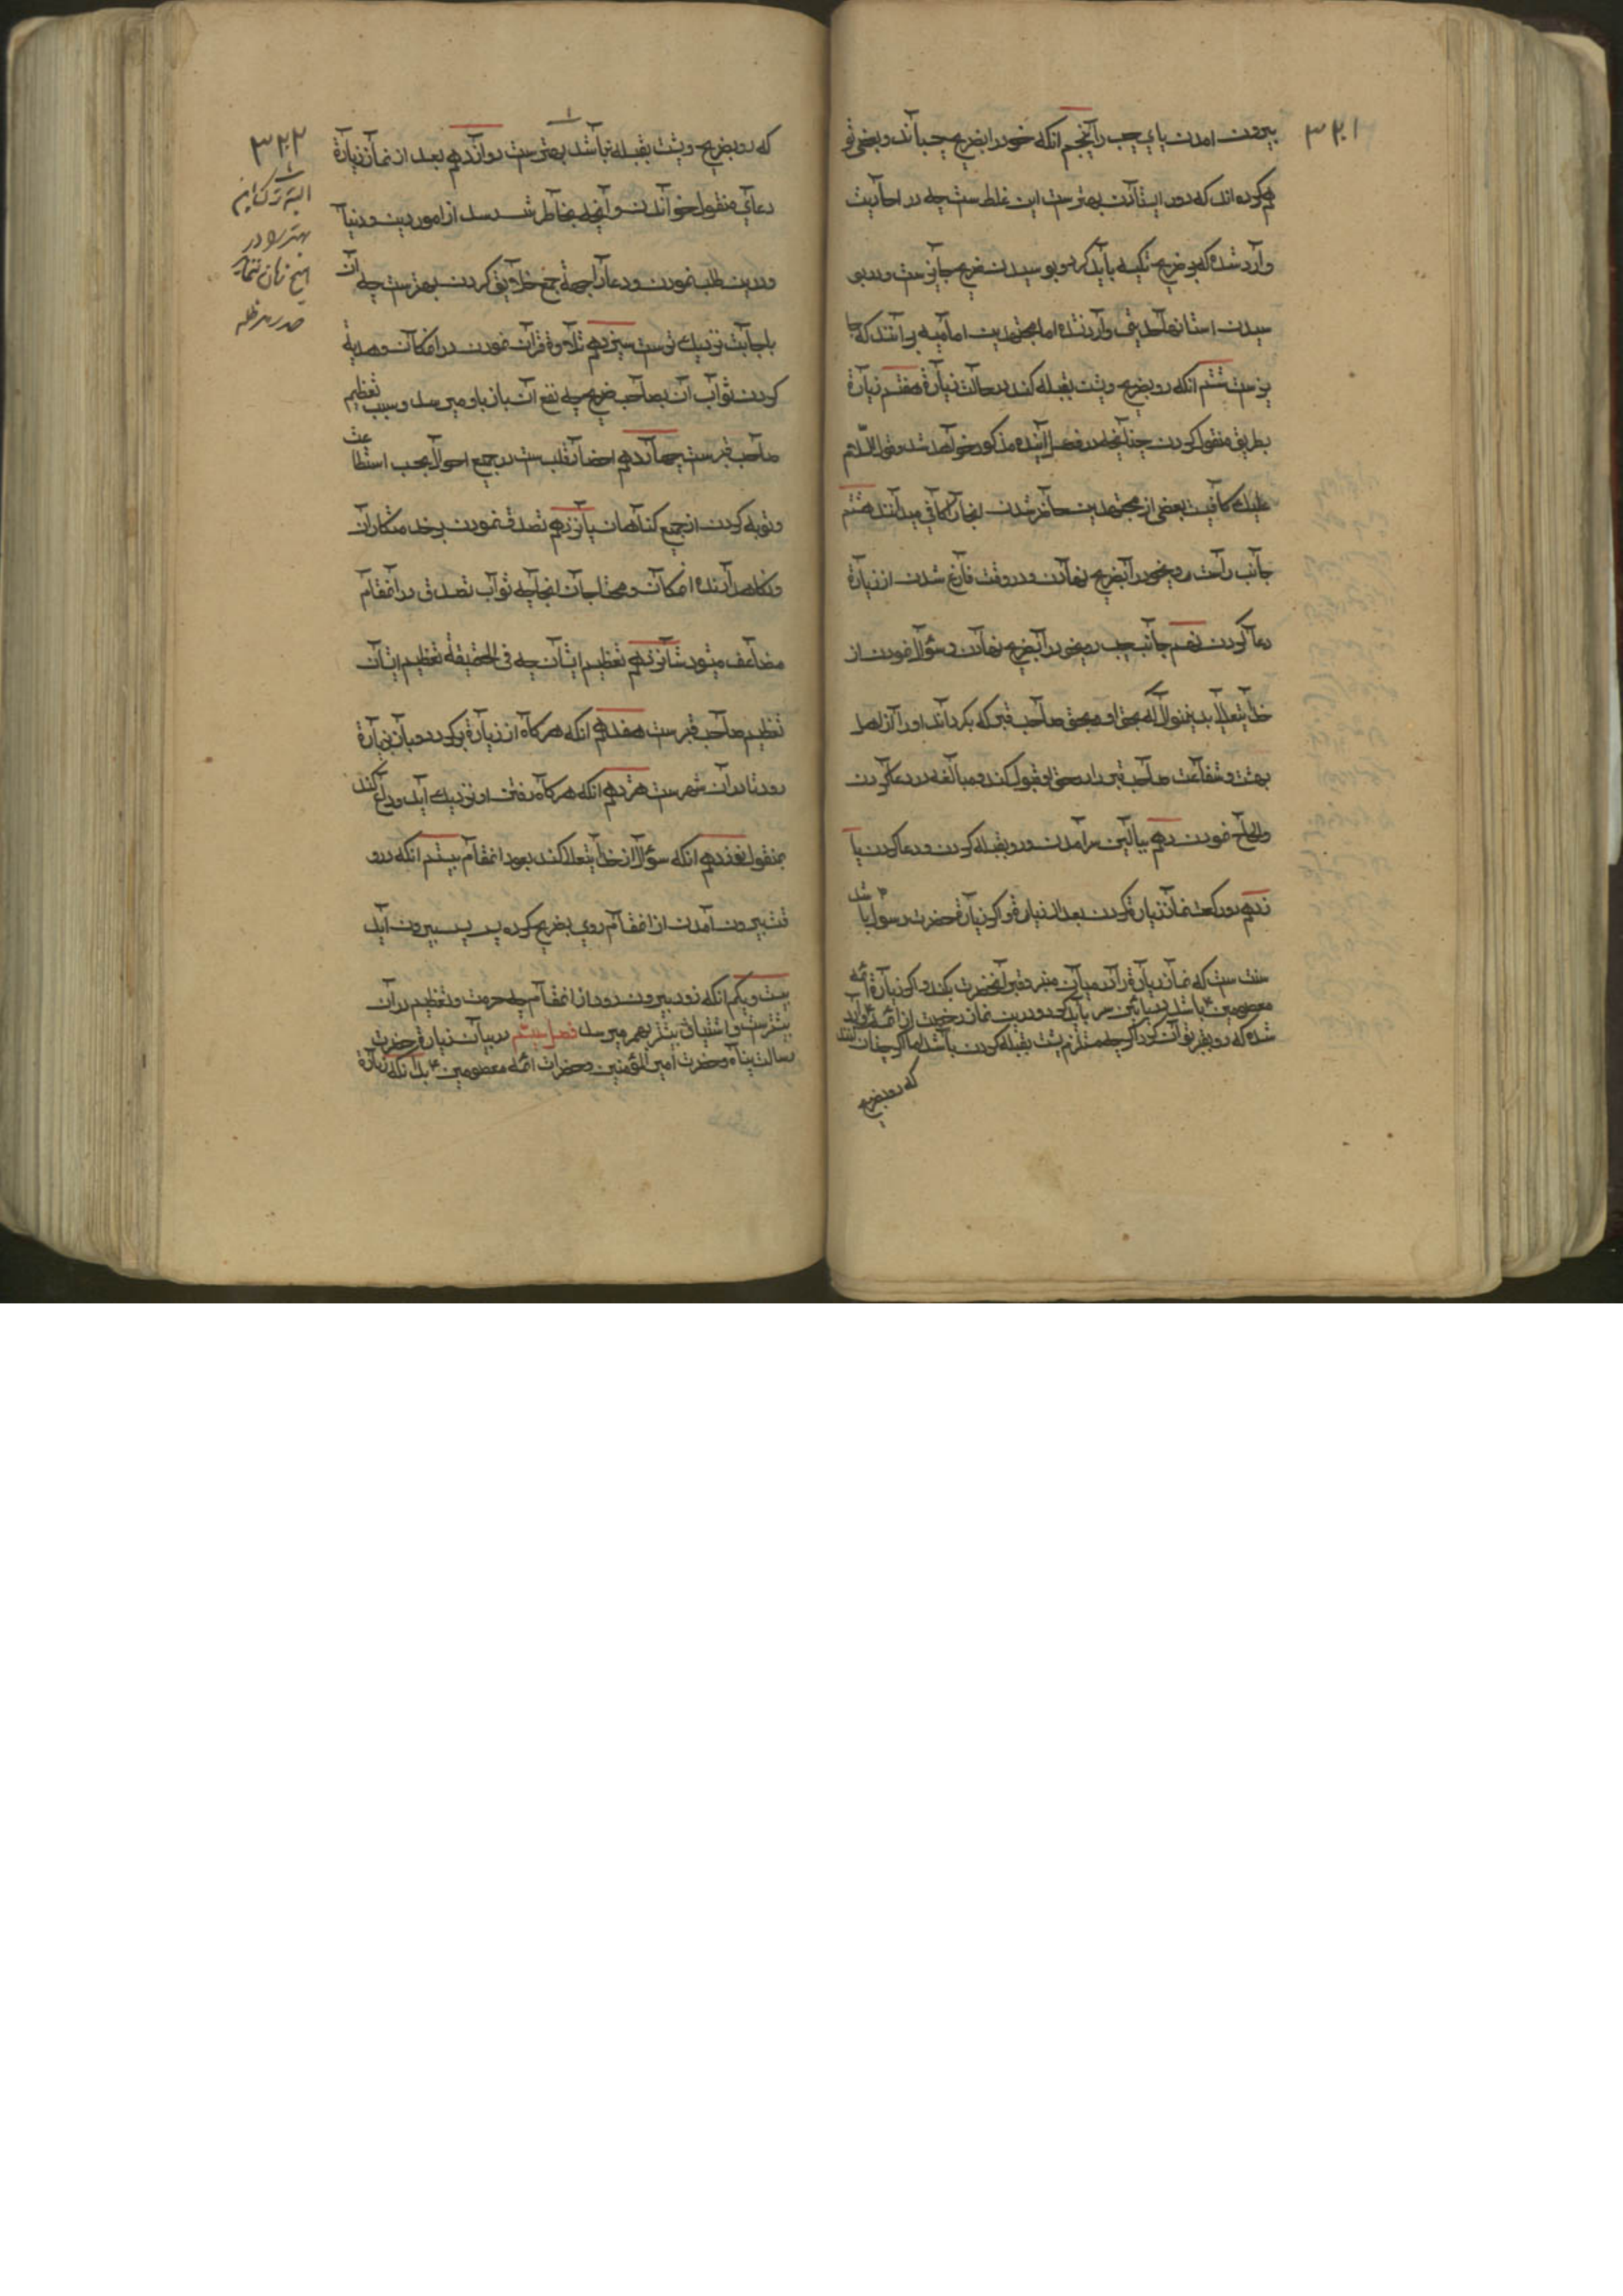 ۳۲۱
بیرون امدن پای چپ را پنجم انکه خود را بضریح چسباند و بعضی تو
هم کرده اند که دور ایستادن بهترست این غلط ست چه در احادیث
وارد شده که بر ضریح تکیه باید کرد و بوسیدن ضریح جایزست و در بو
سیدن استانها حدیثی وارد نشده اما مجتهدین امامیه برانند که جا
یزست ششم انکه رو بضریح و پشت بقبله کند در حالت زیارة هفتم زیارة
بطریق منقول کردن چنانچه در فصل آینده مذکور خواهد شد و قول السّلام
علیک کافیست بعضی از مجتهدین حاضر شدن انجا را کافی میدانند هشتم
جانب راست روی خود را بضریح نهادن و در وقت فارغ شدن از زیارة
دعا کردن نهم جانب چپ روی خود را بضریح نهادن و سؤال نمودن از
خدایتعالی بدین منوال که بحق او و بحق صاحب قبر که بکرداند او را از اهل
بهشت و شفاعت صاحب قبر را در حق او قبول کند و مبالغه در دعا کردن
والحاح نمودن دهم ببالین سر امدن و رو بقبله کردن و دعا کردن یا
زدهم دو رکعت نماز زیارة کردن بعد از زیارة و اکر زیارة حضرت رسول ۴ باشد
سنت ست که نماز زیارة را در میان منبر و قبر آنحضرت بکند و اکر زیارة ائمه
معصومین ۴ باشد در بالین سر باید کرد و درین نماز رخصت از ائمه ۴ وارد
شده که رو بقبر توان کرد اکرچه مستلزم پشت بقبله کردن باشد اما اکر چنان کنند
که رو بضریح
۳۲۲
که رو بضریح و پشت بقبله نباشد بهترست دوازدهم بعد از نماز زیارة
دعای منقول خواندن و آنچه بخاطرش رسد از امور دین و دنیا
و درین طلب نمودن و دعا از جهة جمیع خلایق کردن بهترست چه آن
باجابت نزدیک ترست سیزدهم تلاوة قرآن نمودن در انمکان و هدیة
کردن ثواب آن بصاحب ضریح چه نفع آن باز باو میرسد و سبب تعظیم
صاحب قبرست چهاردهم احضار قلب ست در جمیع احوال بحسب استطاعت
و توبه کردن از جمیع کناهان پانزدهم تصدق نمودن بر خدمتکاران
و نکاهدارنده انمکان و محتاجان انجا چه ثواب تصدق در انمقام
مضاعف میشود شانزدهم تعظیم ایشان چه فی الحقیقة تعظیم ایشان
تعظیم صاحب قبرست هفدهم انکه هرکاه از زیارة برکردد و باز بزیارة
رود تا در آن شهرست هژدهم انکه هرکاه رفتن او نزدیک آید وداع کند
بمنقول نوزدهم انکه سؤال از خدایتعالا کند بعود انمقام بیستم انکه در و
قت بیرون آمدن از انمقام روی بضریح کرده پس پس بیرون آید
بیست و یکم انکه زود بیرون رود از انمقام چه حرمت و تعظیم در آن
بیشترست و اشتیاق بیشتر بهم میرسد فصل بیستم در بیان زیارة حضرت
رسالت پناه و حضرت امیر المؤمنین و حضرات ائمه معصومین ۴ بدانکه زیارة
البته ترک این
بهتر بود در